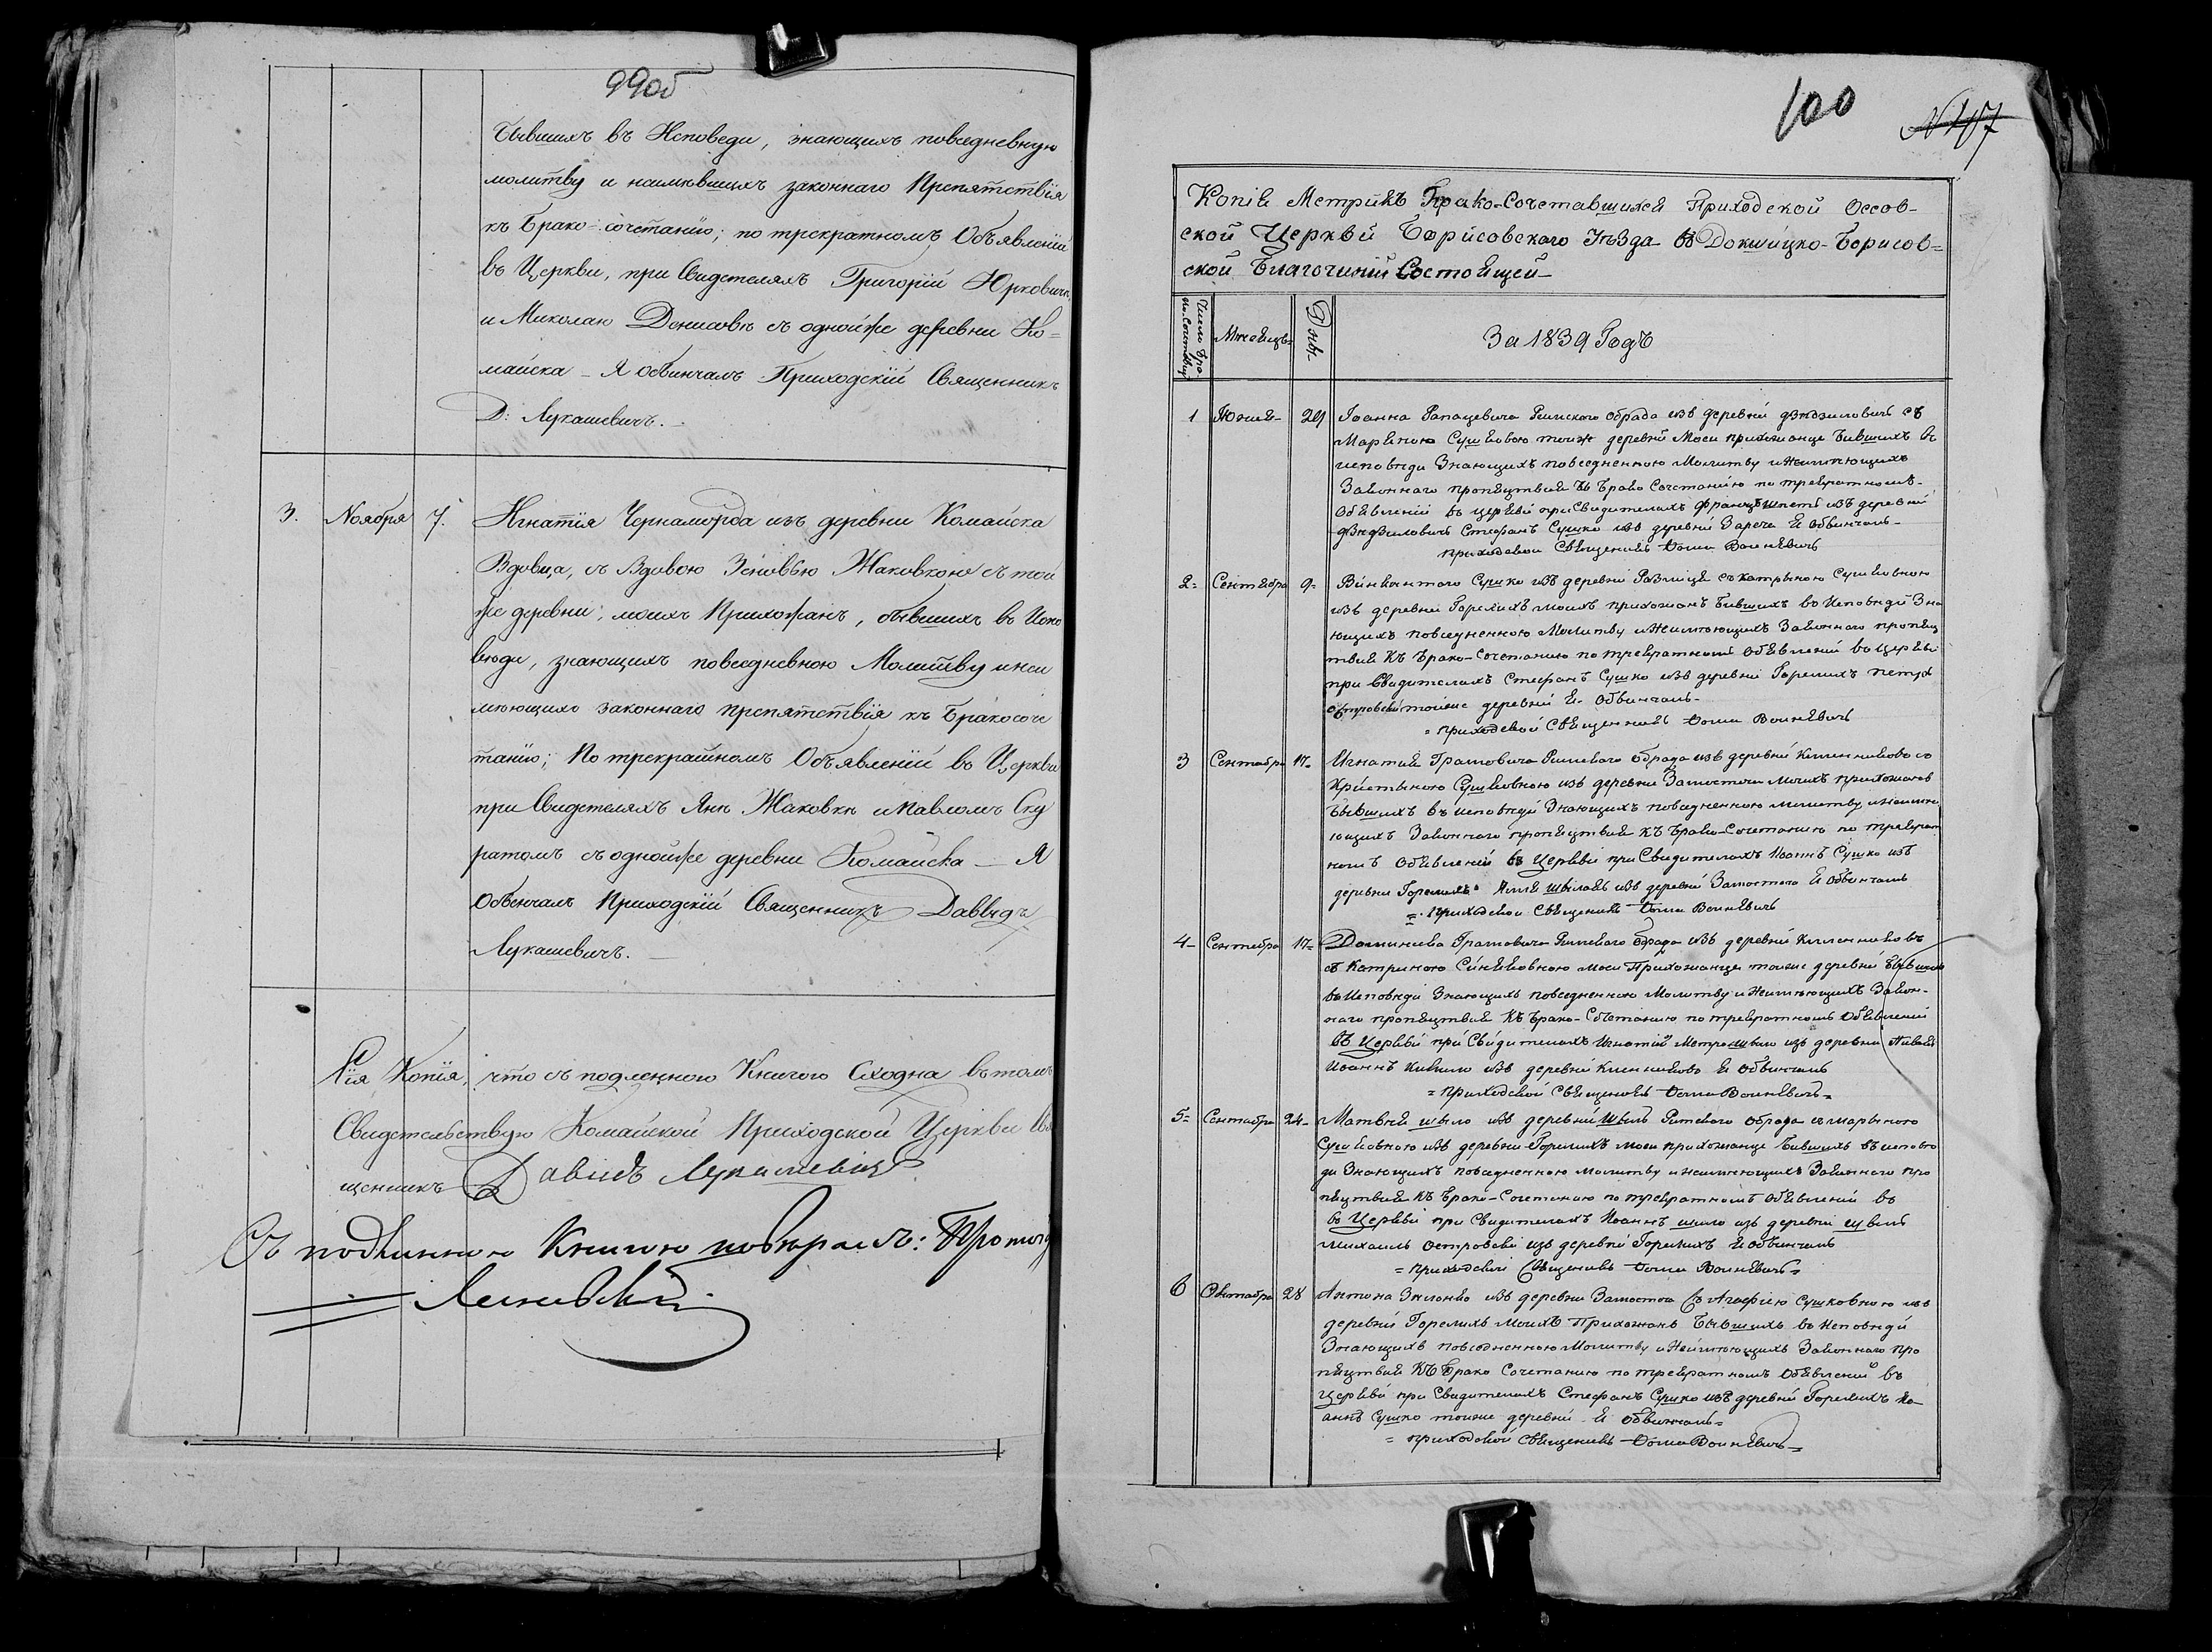 99об
бывшихъ въ Исповеди, знающихъ повседневную
молитву и неимѣвшихъ законнаго Препятствія
къ Брако-сочетанію; по трекратномъ Объявленіи
въ Церкви, при Свидетеляхъ Григоріи Юрковича
и Миколаю Денисовѣ съ однойже деревни Ко=
майска – Я обвинчалъ Приходскій Священникъ
Д: Лукашевичъ.
3. Ноября 7. Игнатія Чернаморда изъ деревни Комайска
Вдовца, съ Вдовою Зеновьею Жаковкою съ той
же деревни; моихъ Прихожанъ, бывшихъ въ Испо
вѣди, знающихъ повседневною Молитву инеи
мѣющихъ законнаго препятствія къ Бракосоче
танію; По трекратномъ Объявленіи въ Церкви
при Свидетеляхъ Янѣ Жаковкѣ иПавломъ Ску
ратомъ съ однойже деревни Комайска – Я
Обвенчалъ Приходскій Священникъ Давыдъ
Лукашевичъ.
Сія Копія, что съ подленною Книгою Сходна въ томъ
Свидетельствую Комайской Приходской Церкви Свя
щенникъ Давидъ Лукашевичъ
Съ подлинною Книгою повѣрялъ: Протоі
100
N 107
Копія Метрикъ Брако-Сочетавшихся Приходской Оссов-
ской Церкви Борисовского Уѣзда въ Докшицко-Борисов=
ской Благочиніи Состоящей
Число Бра-
ко-Сочетавш
Мѣсяцъ
Дни
За 1839 Годъ
1 Июния 29 Іоанна Рапацевича Римского обряда изъ деревни съ
Марѣною Сушковою тоиж деревни Моеи прихожанце Бившихъ въ
исповѣди Знающихъ повседненною Молитву и Неимѣющихъ
Законнаго пропяцтвия къ Брако Сочетанію по трекратномъ
Обявлении въ церкви при Свидителяхъ изъ деревни
Стефанъ Сушко изъ деревни Заречя Я Обвинчалъ
приходской Священикъ Фома Воинѣвичъ
2= Сентября 9= Винкентого Сушко изъ деревни съ катрыною Сушковною
изъ деревни Горелихъ моихъ прихожанъ Бившихъ во Исповѣди Зна
ющихъ повседненною Молитву и Неимѣющихъ Законного пропяц
твия Къ Брако-Сочетанию по трекратномъ Обявлении во Церкви
при Свидителяхъ Стефанъ Сушко изъ деревни Горелихъ петръ
Островски тоиже деревни Я Обвинчалъ
= приходской Священикъ Фома Воинѣвичъ
3 Сентября 17= Игнатия Грамовича Римского обряда изъ деревни Клиенниково со
Крыстыною Сушковною изъ деревни Замосточа Моихъ прихожанъ
Бывшихъ въ исповѣди Знающихъ повседненною молитву и неимѣ
ющихъ Законного пропяцтвия къ Брако-Сочетанию по трекрат
номъ Обявлении въ Церкви при Свидителяхъ Иоаннъ Сушко изъ
деревни Горелихъ Илля изъ деревни Замосточа Я Обвинчалъ
= приходской Священикъ Фома Воинѣвичъ
4- Сентебра 17= Доминика Грамовича Римского обряда изъ деревни Клиенниковъ
съ Катриною Моеи Прихожанце тоиже деревни Бывшихъ
въ Исповѣди Знающихъ повседненною Молитву и Неимѣющихъ Закон-
наго пропяцтвия Къ Брако-Сочетанию по трекратномъ Обявлении
въ Церкви при Свидителяхъ Игнатий изъ деревни
Иоаннъ изъ деревни Клиенниково Я Обвинчалъ
= приходской Священикъ Фома Воинѣвичъ=
5= Сентября 24- Матвѣя шыло изъ деревни Римского обряда съ марыною
Сушковною изъ деревни Горелихъ моеи прихожанце Бившихъ въ исповѣ
ди Знающихъ повседненною молитву и неимѣющихъ Законного про
пяцтвия Къ Брако-Сочетанию по трекратномъ Обявлении въ
во Церкви при Свидителяхъ Иоаннъ шило изъ деревни
Михаилъ островски изъ деревни Горелихъ Я Обвинчалъ
= приходской Священикъ Фома Воинѣвичъ=
6 Октября 28 Антона изъ деревни Замосточа съ Агафiею Сушковною изъ
деревни Горелихъ Моихъ Прихожанъ Бывшихъ въ Исповѣди
Знающихъ повседненною Молитву и Неимѣющихъ Законнаго про
пяцтвия Къ Брако Сочетанию по трекратномъ Обявлении въ
Церкви при Свидителяхъ Стефанъ Сушко изъ деревни Горелихъ Ио-
аннъ Сушко тоиже деревни Я Обвинчалъ=
= приходской Священикъ Фома Воинѣвичъ=